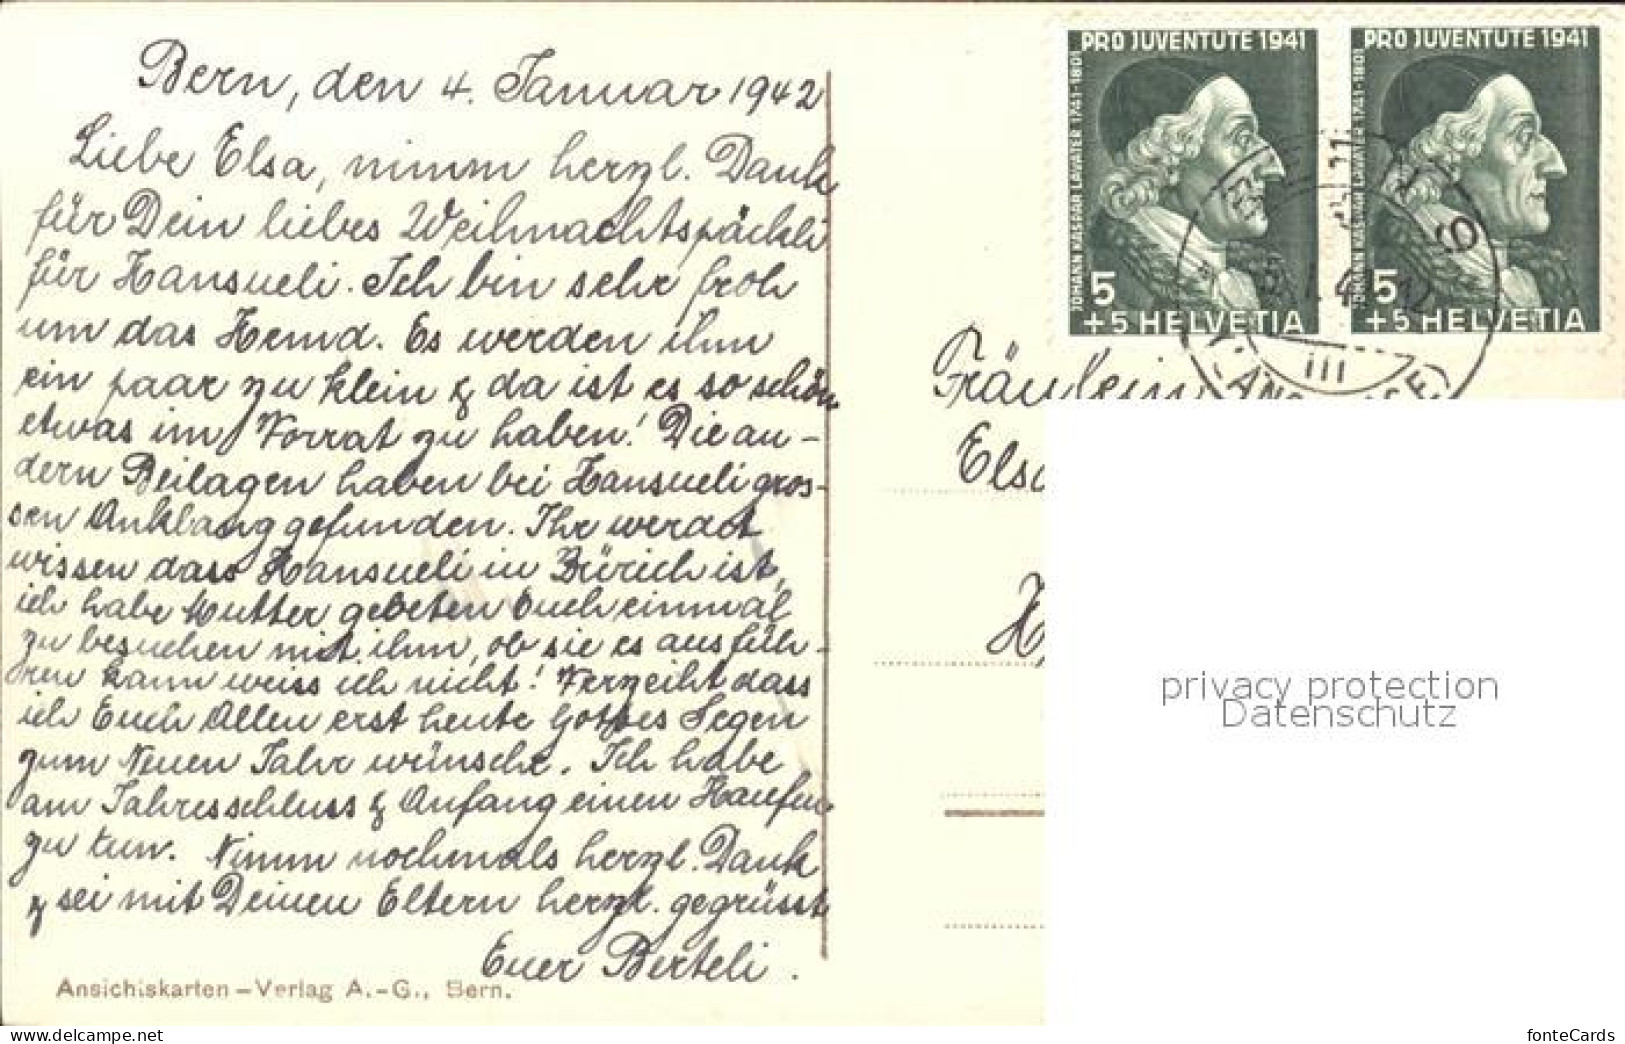 Bern, den 4. Januar 1942
Liebe Elsa, nimm herzl. Dank
für Dein liebes Weihnachtspäckli
für Hansueli. Ich bin sehr froh
um das Hemd. Es werden ihm
ein paar zu klein & da ist es so schön
etwas im Vorrat zu haben! Die an-
dern Beilagen haben bei Hansueli gros-
sen Anklang gefunden. Ihr werdet
wissen dass Hansueli in Zürich ist,
ich habe Mutter gebeten Euch einmal
zu besuchen mit ihm, ob sie es ausfüh-
ren kann weiss ich nicht! Verzeiht dass
ich Euch Allen erst heute Gottes Segen
zum Neuen Jahr wünsche. Ich habe
am Jahresschluss & Anfang einen Haufen
zu tun. Nimm nochmals herzl. Dank
& sei mit Deinen Eltern herzl. gegrüsst
Euer Berteli.
Ansichtskarten-Verlag A.-G., Bern.
PRO JUVENTUTE 1941
JOHANN KASPAR LAVATER 1741-1801
5
+5 HELVETIA
PRO JUVENTUTE 1941
JOHANN KASPAR LAVATER 1741-1801
5
+5 HELVETIA
III
Fräulein
Elsa
privacy protection
Datenschutz
www.delcampe.net
fonteCards